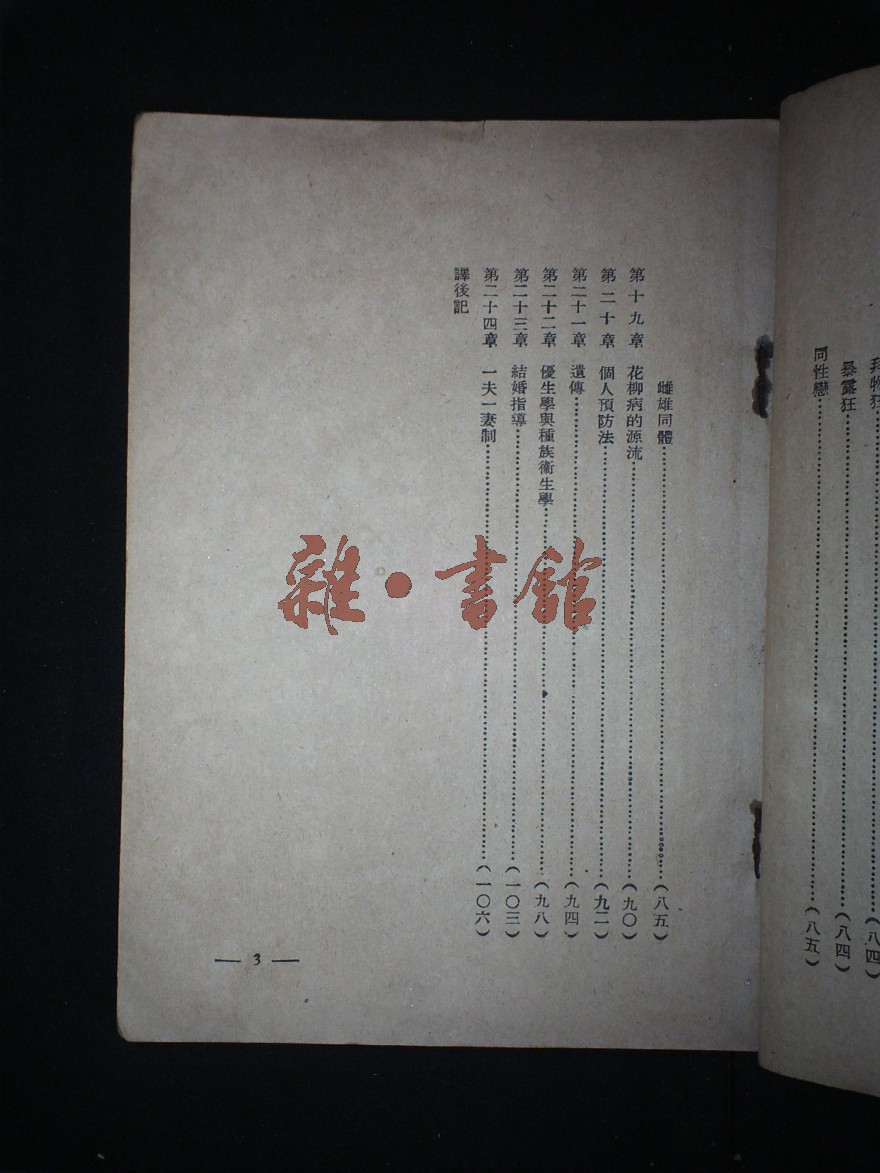 拜物狂……(八四)
暴露狂……(八四)
同性戀……(八五)
雌雄同體……(八五)
第十九章 花柳病的源流……(九〇)
第二十章 個人預防法……(九二)
第二十一章 遺傳……(九四)
第二十二章 優生學與種族衛生學……(九八)
第二十三章 結婚指導……(一〇三)
第二十四章 一夫一妻制……(一〇六)
譯後記
— 3 —
雜·書館